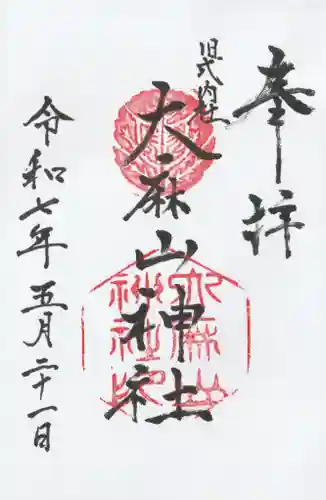 奉拝
旧式内社
大麻山神社
令和七年五月二十一日
大麻山神社印